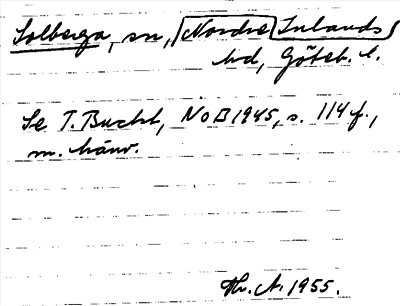 Solberga, sn, Nordre Inlands
hd, Göteb. l.
Se T. Bucht, NoB 1945, s. 114 f.,
m. hänv.
Th. A. 1955.